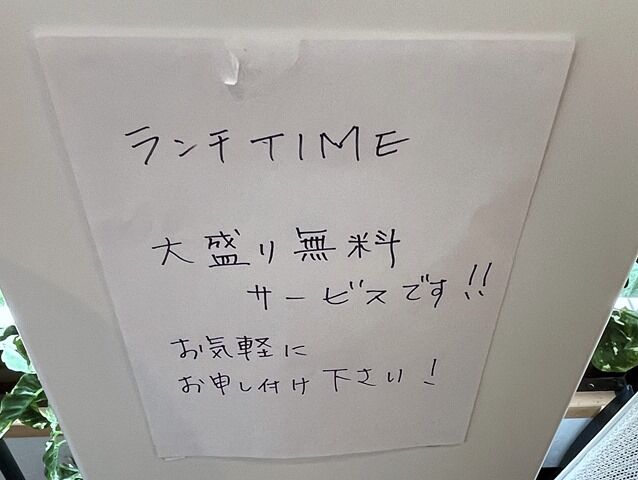 ランチTIME
大盛り無料
サービスです!!
お気軽に
お申し付け下さい!